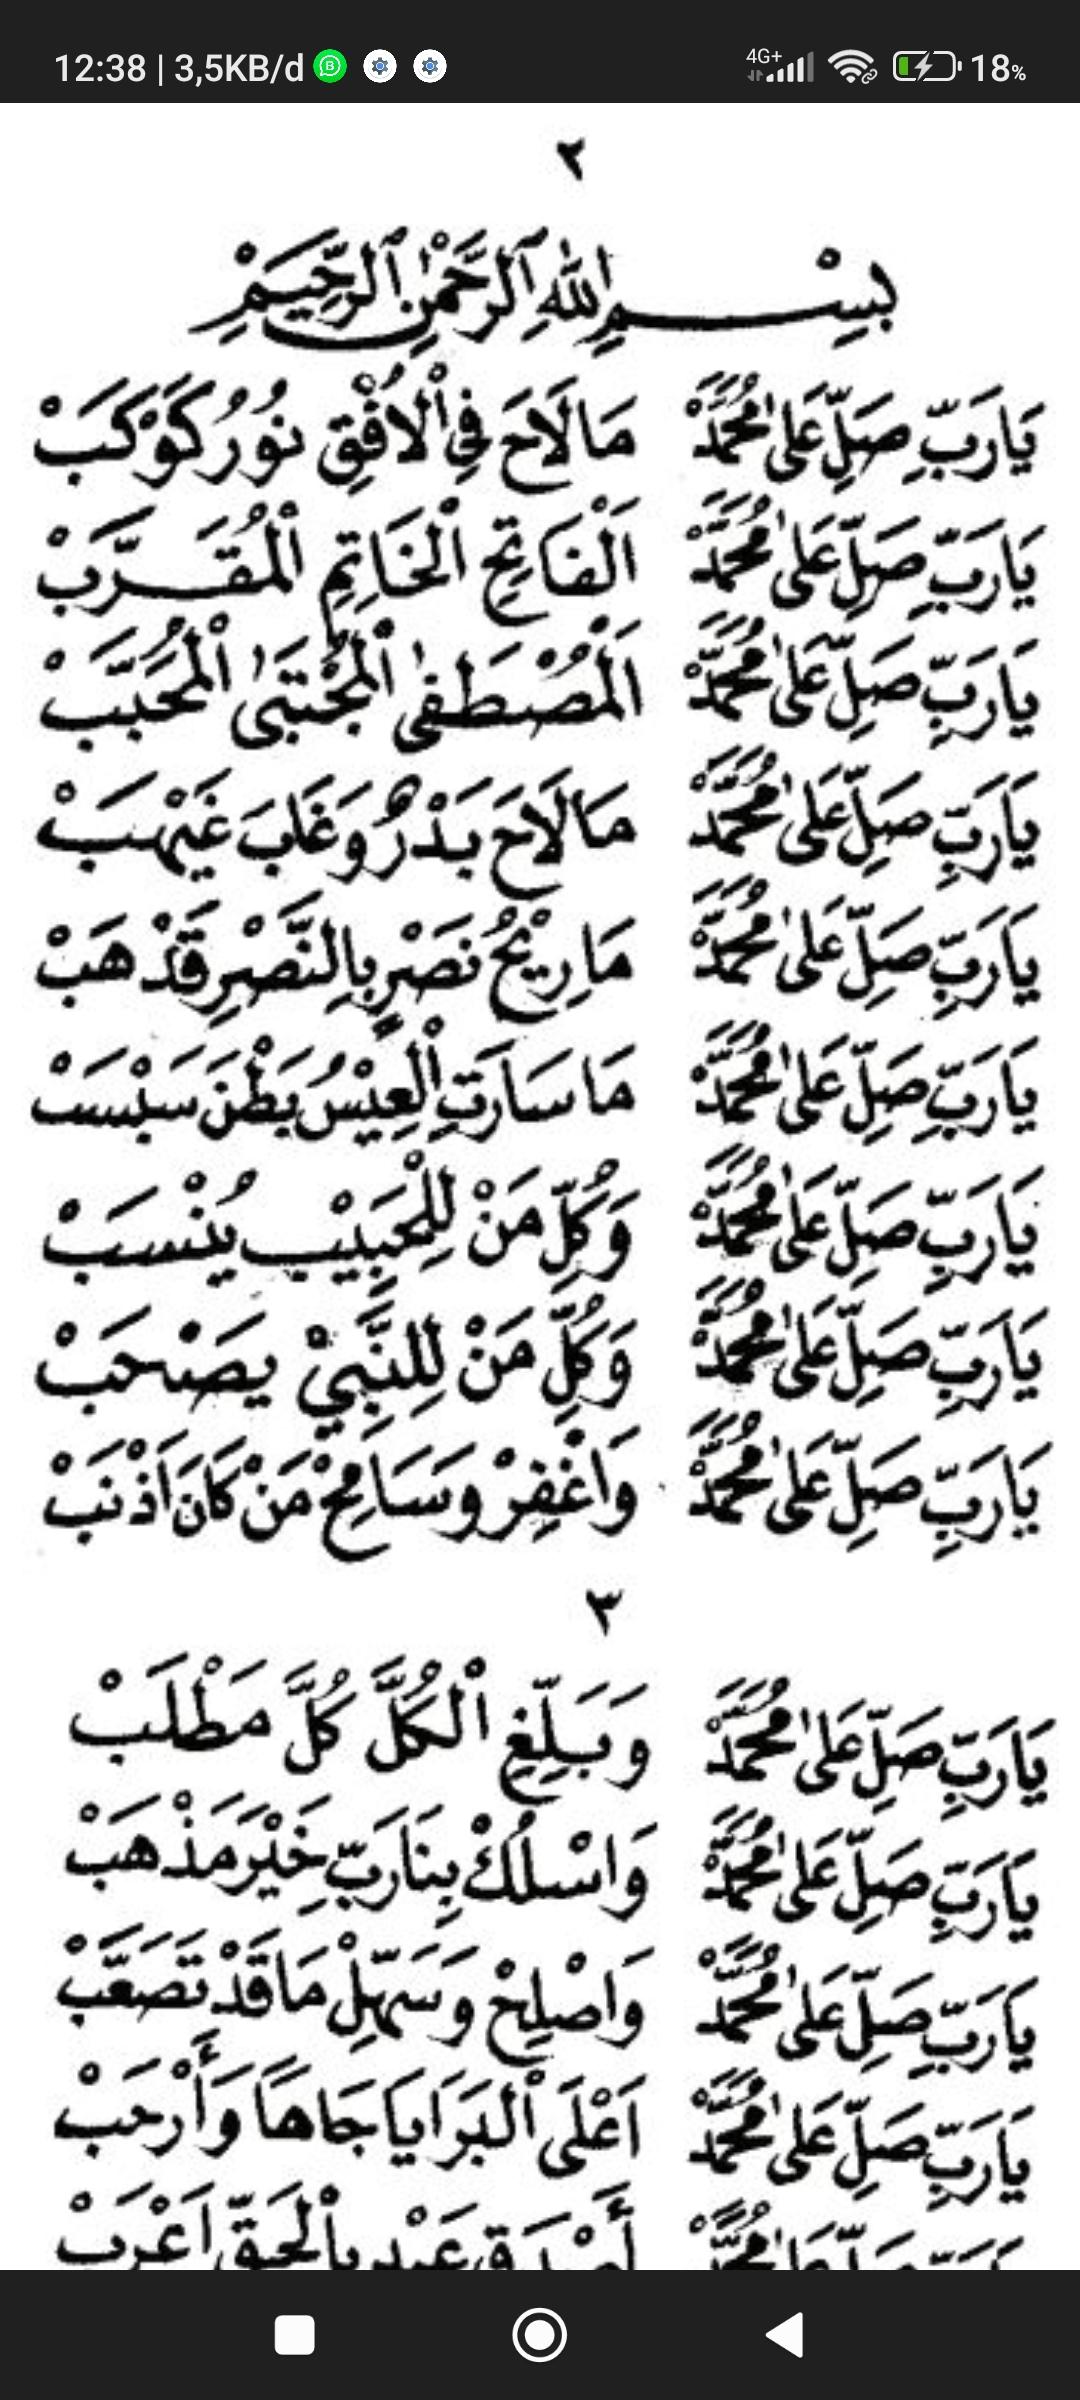 12:38 | 3,5KB/d 4G+ 18%
٢
بِسْمِ اللهِ الرَّحْمٰنِ الرَّحِيْمِ
يَارَبِّ صَلِّ عَلىٰ مُحَمَّدْ مَالَاحَ فِي الْاُفْقِ نُوْرُ كَوْكَبْ
يَارَبِّ صَلِّ عَلىٰ مُحَمَّدْ اَلْفَاتِحِ الْخَاتِمِ الْمُقَرَّبْ
يَارَبِّ صَلِّ عَلىٰ مُحَمَّدْ اَلْمُصْطَفىٰ الْمُجْتَبىٰ الْمُحَبَّبْ
يَارَبِّ صَلِّ عَلىٰ مُحَمَّدْ مَالَاحَ بَدْرٌ وَغَابَ غَيْهَبْ
يَارَبِّ صَلِّ عَلىٰ مُحَمَّدْ مَارِيْحُ نَصْرٍ بِالنَّصْرِ قَدْ هَبْ
يَارَبِّ صَلِّ عَلىٰ مُحَمَّدْ مَاسَارَتِ الْعِيْسُ بَطْنَ سَبْسَبْ
يَارَبِّ صَلِّ عَلىٰ مُحَمَّدْ وَكُلِّ مَنْ لِلْحَبِيْبِ يُنْسَبْ
يَارَبِّ صَلِّ عَلىٰ مُحَمَّدْ وَكُلِّ مَنْ لِلنَّبِيْ يَصْحَبْ
يَارَبِّ صَلِّ عَلىٰ مُحَمَّدْ وَاغْفِرْ وَسَامِحْ مَنْ كَانَ اَذْنَبْ
٣
يَارَبِّ صَلِّ عَلىٰ مُحَمَّدْ وَبَلِّغِ الْكُلَّ كُلَّ مَطْلَبْ
يَارَبِّ صَلِّ عَلىٰ مُحَمَّدْ وَاسْلُكْ بِنَارَبِّ خَيْرَ مَذْهَبْ
يَارَبِّ صَلِّ عَلىٰ مُحَمَّدْ وَاصْلِحْ وَسَهِّلْ مَاقَدْ تَصَعَّبْ
يَارَبِّ صَلِّ عَلىٰ مُحَمَّدْ اَعْلَى الْبَرَايَا جَاهًا وَأَرْحَبْ
يَارَبِّ صَلِّ عَلىٰ مُحَمَّدْ أَصْدَقِ عَبْدٍ بِالْحَقِّ اَعْرَبْ